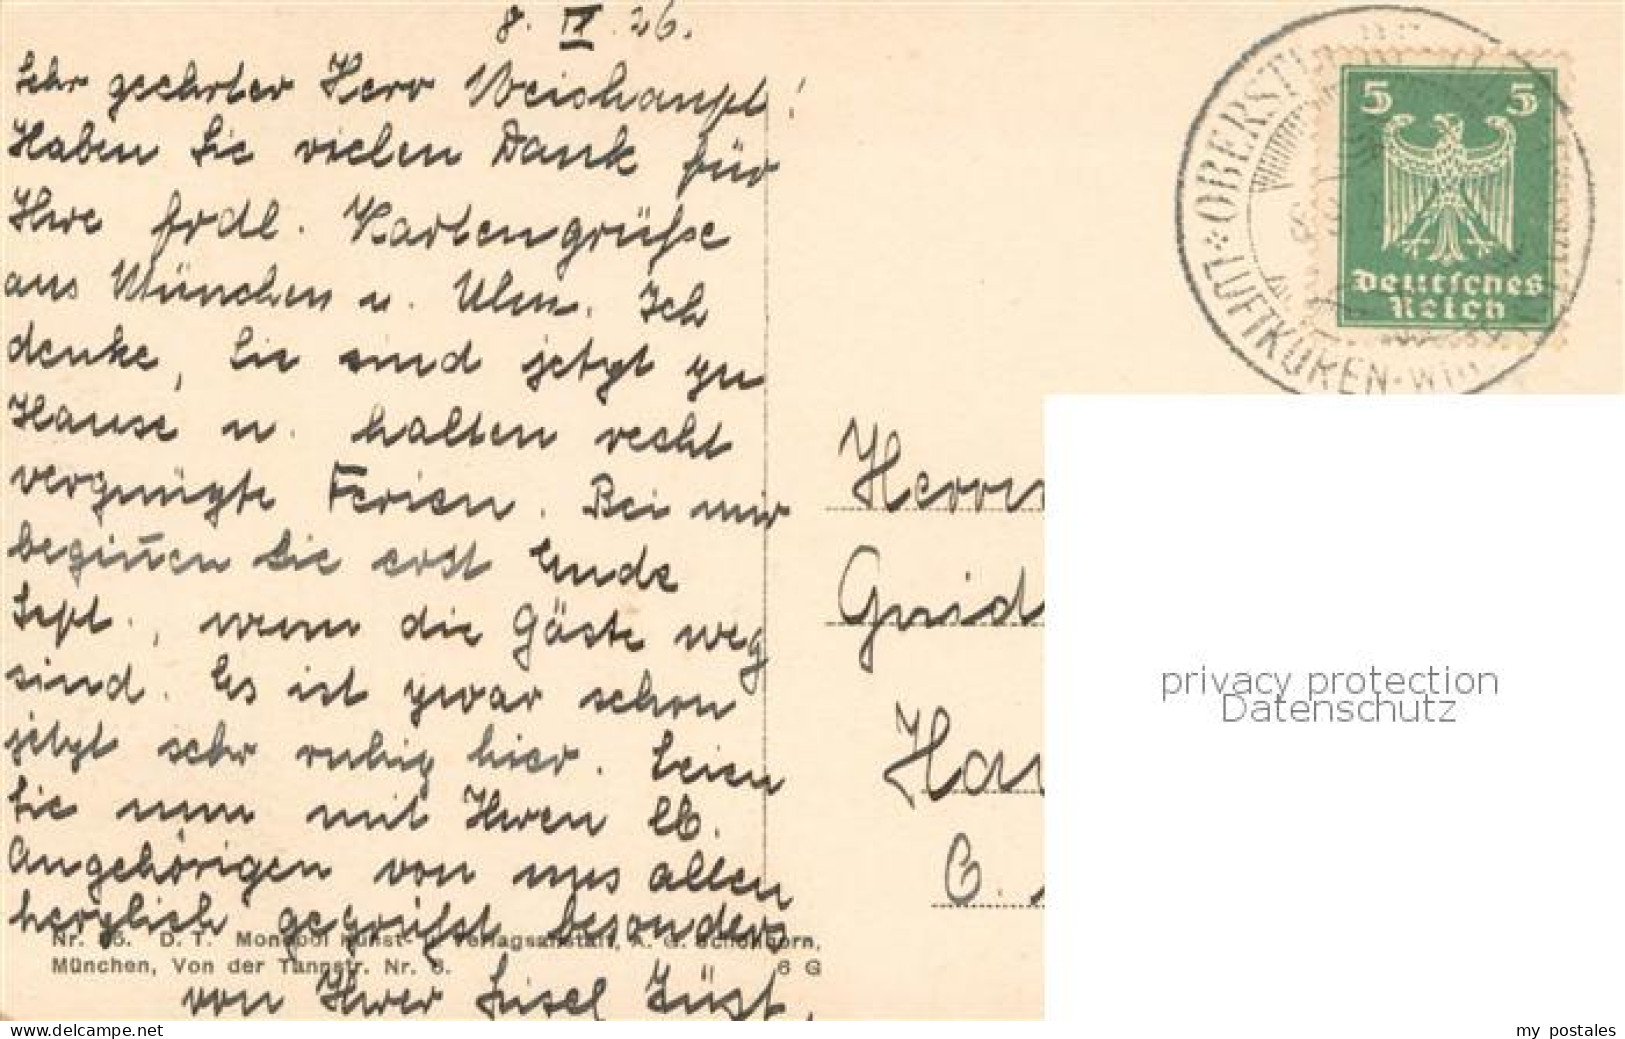 8. IX. 26.
Sehr geehrter Herr Weishaupt!
Haben Sie vielen Dank für
Ihre frdl. Kartengrüße
aus München u. Ulm. Ich
denke, Sie sind jetzt zu
Hause u. halten recht
vergnügte Ferien. Bei mir
begin̄en Sie erst Ende
Sept., wenn die Gäste weg
sind. Es ist zwar schon
jetzt sehr ruhig hier. Seien
Sie nun mit Ihren lb.
Angehörigen von uns allen
herzlich gegrüßt besonders
von Ihrer Liesel
Nr. D. T. Monopol Kunst- u. Verlagsanstalt, A. G. Schönborn,
München, Von der Tannstr. Nr. 6. 6 G
OBERSTDORF
LUFTKUREN-WIN
5 5
Deutsches
Reich
Herrn
Guid
Hau
C.
privacy protection
Datenschutz
www.delcampe.net
my_postales